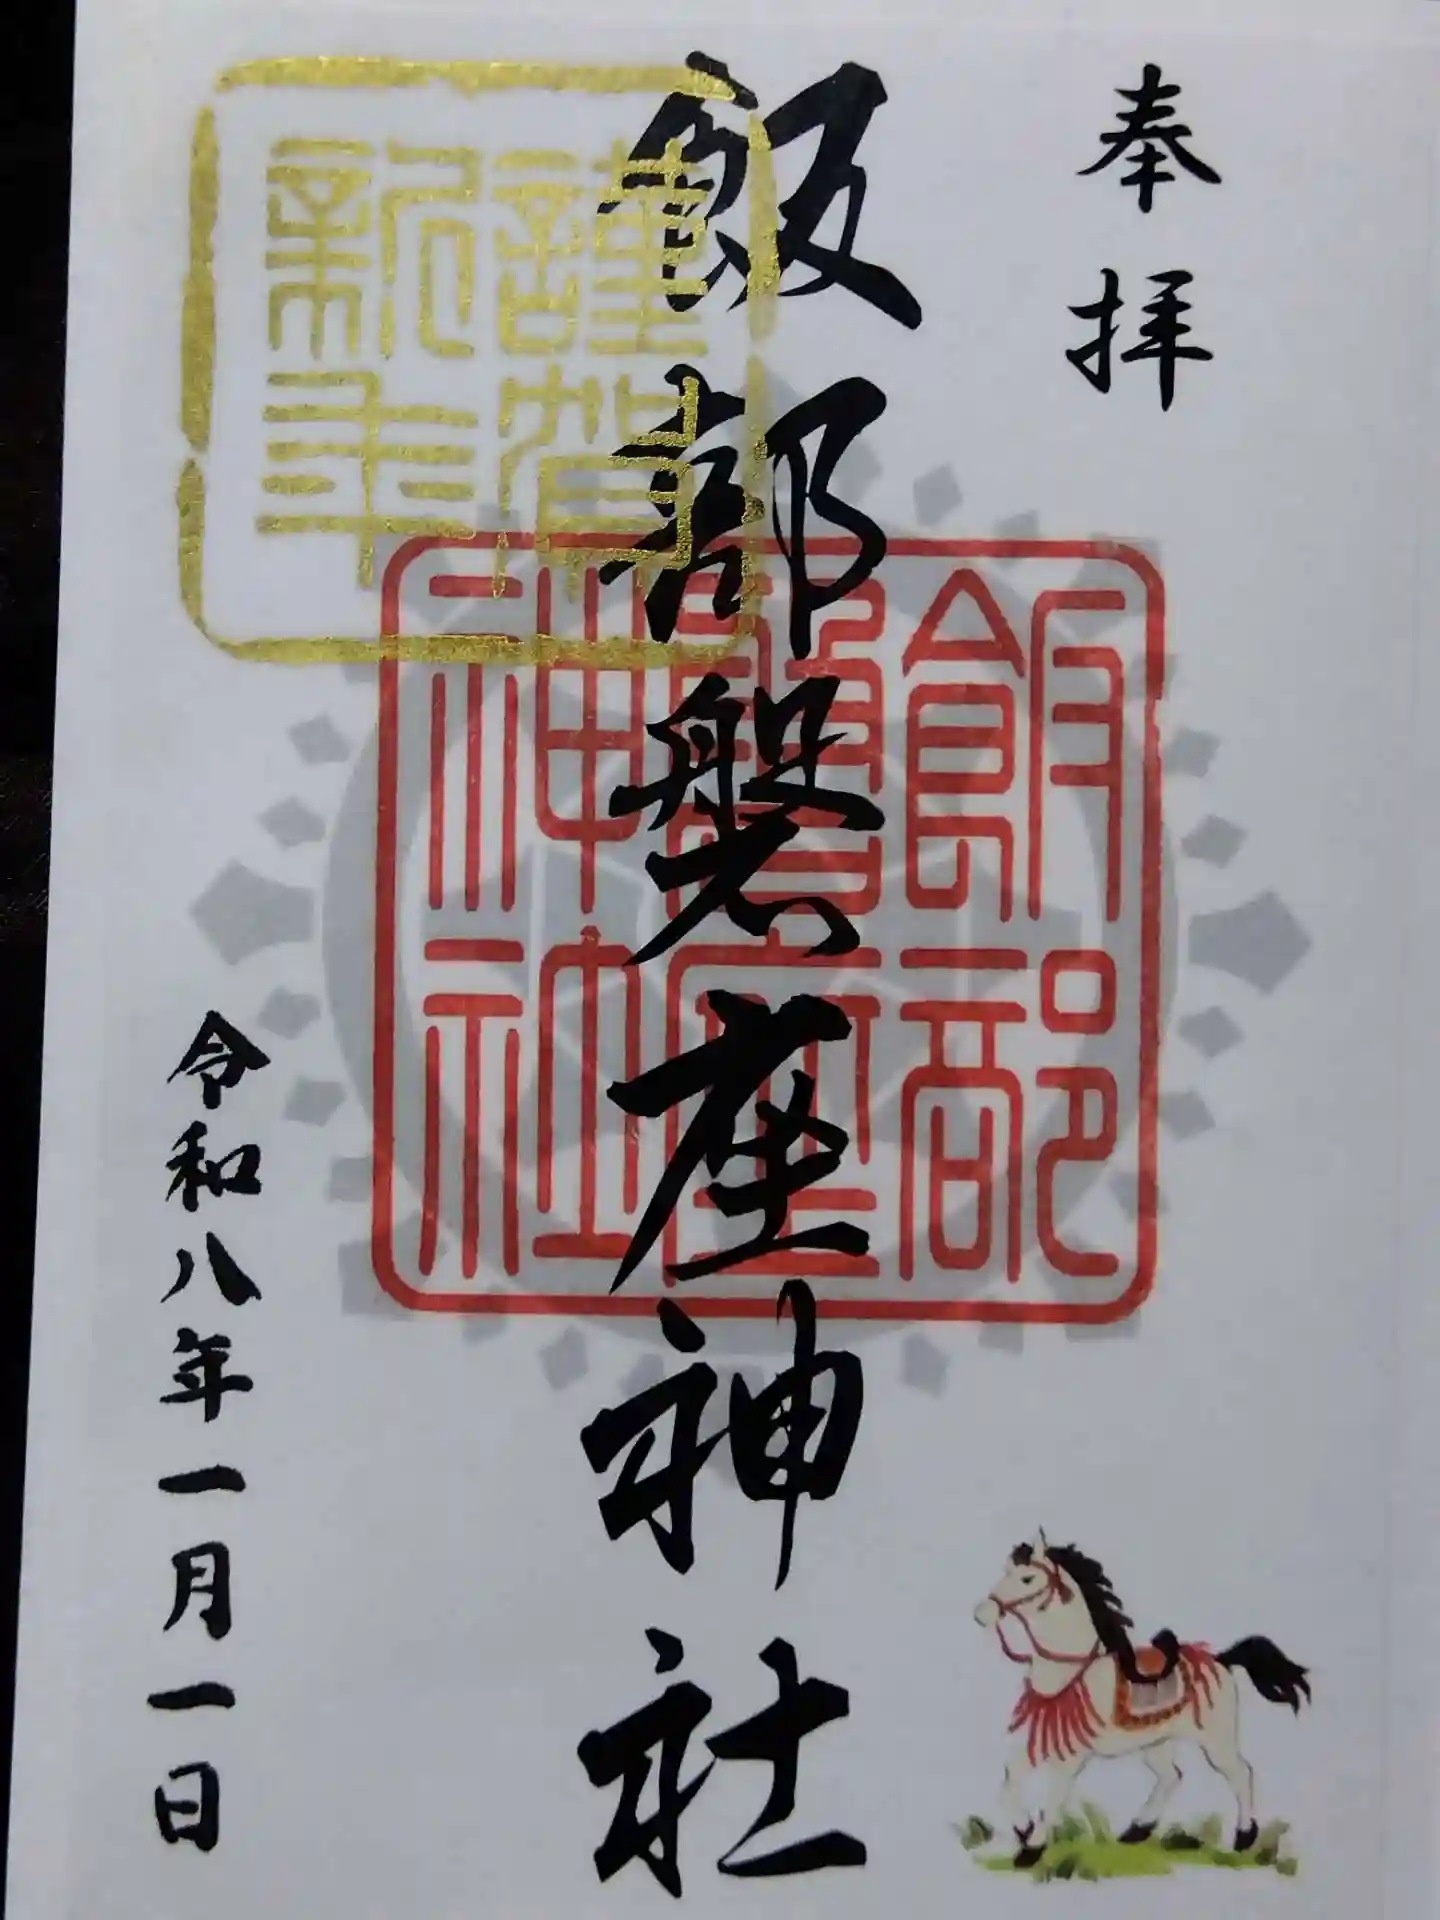 奉拝
飯部磐座神社
飯部
磐座
神社
謹賀
新年
令和八年一月一日